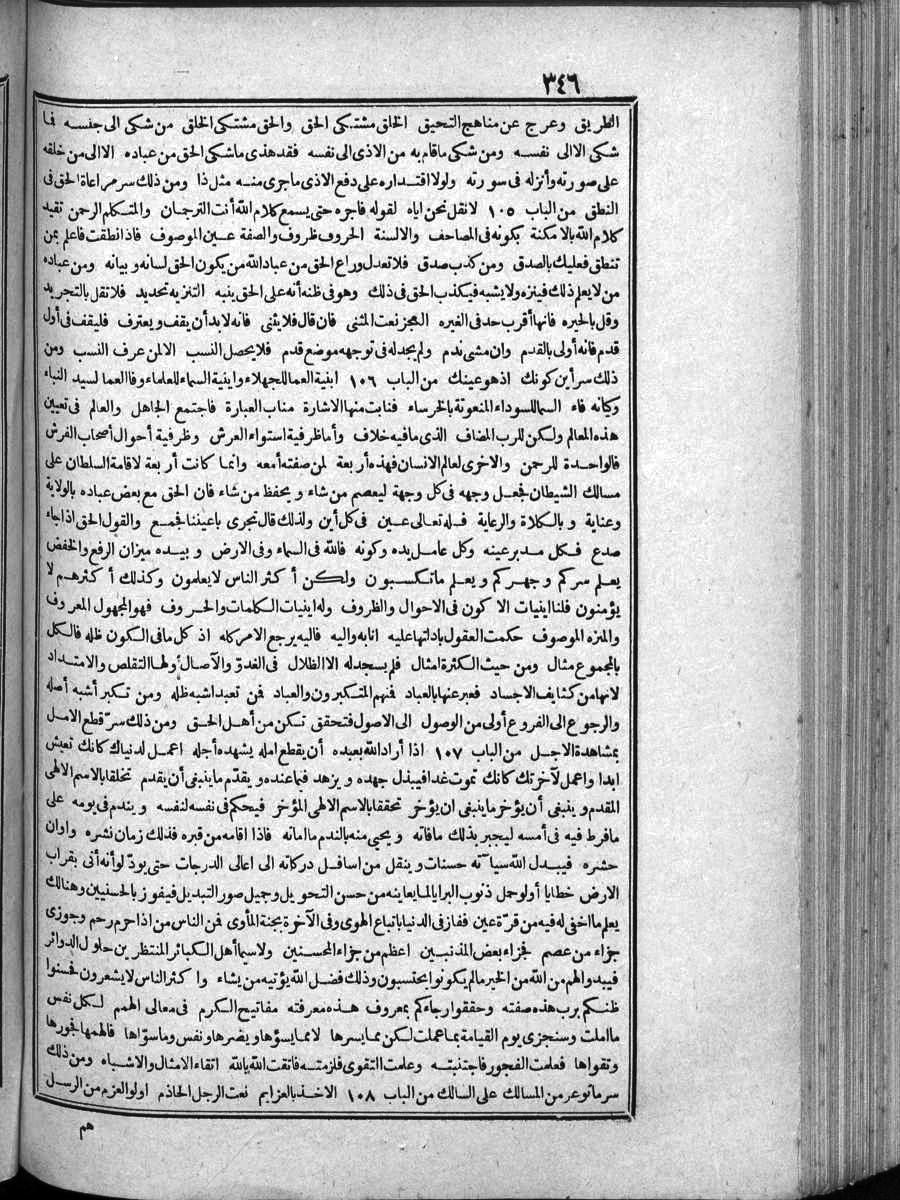 ٣٤٦
الطريق وعرج عن مناهج التحقيق الخلق مشتكى الحق والحق مشتكى الخلق من شكى الى جنسه فما
شكى الاالى نفسه ومن شكى ماقام به من الاذى الى نفسه فقد هذى ماشكى الحق من عباده الاالى من خلقه
على صورته وأنزله فى سورته ولولا اقتداره على دفع الاذى ماجرى منه مثل ذا ومن ذلك سر مراعاة الحق فى
النطق من الباب ١٠٥ لانقل نحن اياه لقوله فاجره حتى يسمع كلام الله أنت الترجمان والمتكلم الرحمن تقيد
كلام الله بالامكنة بكونه فى المصاحف والالسنة الحروف ظروف والصفة عين الموصوف فاذا نطقت فاعلم بمن
تنطق فعليك بالصدق ومن كذب صدق فلا تعدل وراع الحق من عباد الله من يكون الحق لسانه وبيانه ومن عباده
من لا يعلم ذلك فينزه ولا يشبه فيكذب الحق فى ذلك وهو فى ظنه أنه على الحق ينبه التنزيه تحديد فلا تقل بالتجريد
وقل بالحيره فانها أقرب حد فى الغيره العجز نعت المثنى فان قال فلا يثنى فانه لابد أن يقف ويعترف فليقف فى أول
قدم فانه أولى بالقدم وان مشى ندم ولم يجد له فى توجهه موضع قدم فلا يحصل النسب الا لمن عرف النسب ومن
ذلك سر أين كونك اذ هو عينك من الباب ١٠٦ اينية العما للجهلاء واينية السماء للعلماء وفا العما لسيد النباء
وكيانه فاء السما للسوداء المنعوتة بالخرساء فنابت منها الاشارة مناب العبارة فاجتمع الجاهل والعالم فى تعيين
هذه المعالم ولكن للرب المضاف الذى مافيه خلاف وأما ظرفية استواء العرش وظرفية أحوال أصحاب الفرش
فالواحدة للرحمن والاخرى لعالم الانسان فهذه أربعة لمن صفته أمعه وانما كانت أربعة لاقامة السلطان على
مسالك الشيطان فجعل وجهه فى كل وجهة ليعصم من شاء ويحفظ من شاء فان الحق مع بعض عباده بالولاية
وعناية وبالكلاة والرعاية فله تعالى عين فى كل أين ولذلك قال تجرى باعيننا فجمع والقول الحق اذا جاء
صدع فكل مدبر عينه وكل عامل يده وكونه فالله فى السماء وفى الارض وبيده ميزان الرفع والخفض
يعلم سركم وجهركم ويعلم ماتكسبون ولكن أكثر الناس لايعلمون وكذلك أكثرهم لا
يؤمنون فلنا اينيات الاكون فى الاحوال والظروف وله اينيات الكلمات والحروف فهو المجهول المعروف
والمنزه الموصوف حكمت العقول بادلتها عليه انابه واليه فاليه يرجع الامر كله اذ كل مافى الكون ظله فالكل
بالمجموع مثال ومن حيث الكثرة امثال فلم يسجد له الا الظلال فى الغدو والآصال ولها التقلص والامتداد
لانها من كثايف الاجساد فعبر عنها بالعباد فمنهم المتكبرون والعباد فمن تعبد اشبه ظله ومن تكبر أشبه أصله
والرجوع الى الفروع أولى من الوصول الى الاصول فتحقق تكن من أهل الحق ومن ذلك سر قطع الامل
بمشاهدة الاجل من الباب ١٠٧ اذا أراد الله بعبده أن يقطع امله يشهده أجله اعمل لدنياك كانك تعيش
ابدا واعمل لآخرتك كانك تموت غدا فيبذل جهده ويزهد فيما عنده ويقدم ماينبغى أن يقدم تخلقا بالاسم الالهى
المقدم وينبغى أن يؤخر ماينبغى ان يؤخر تحققا بالاسم الالهى المؤخر فيحكم فى نفسه لنفسه ويندم فى يومه على
مافرط فيه فى أمسه ليجبر بذلك مافاته ويحيى منه بالندم ماامانه فاذا اقامه من قبره فذلك زمان نشره واوان
حشره فيبدل الله سيآته حسنات وينقل من اسافل دركاته الى اعالى الدرجات حتى يود لو أنه أتى بقراب
الارض خطايا أو لو حمل ذنوب البرايا لما يعاينه من حسن التحويل وجميل صور التبديل فيفوز بالحسنيين وهنالك
يعلم ما اخفى له فيه من قرة عين ففاز فى الدنيا باتباع الهوى وفى الآخرة بجنة المأوى فمن الناس من اذا حرم رحم وجوزى
جزاء من عصم فجزاء بعض المذنبين اعظم من جزاء المحسنين ولاسيما أهل الكبائر المنتظرين حلول الدوائر
فيبدو لهم من الله من الخير مالم يكونوا يحتسبون وذلك فضل الله يؤتيه من يشاء واكثر الناس لايشعرون فحسنوا
ظنكم برب هذه صفته وحققوا رجاءكم بمعروف هذه معرفته مفاتيح الكرم فى معالى الهمم لكل نفس
ما املت وستجزى يوم القيامة بما عملت لكن مما يسرها لا مما يسؤها ويضرها ونفس وماسواها فالهمها فجورها
وتقواها فعلمت الفجور فاجتنبته وعلمت التقوى فلزمته فاتقت الله بالله اتقاء الامثال والاشباه ومن ذلك
سر ماتوعر من المسالك على السالك من الباب ١٠٨ الاخذ بالعزايم نعت الرجل الحاذم اولو العزم من الرسل
هم